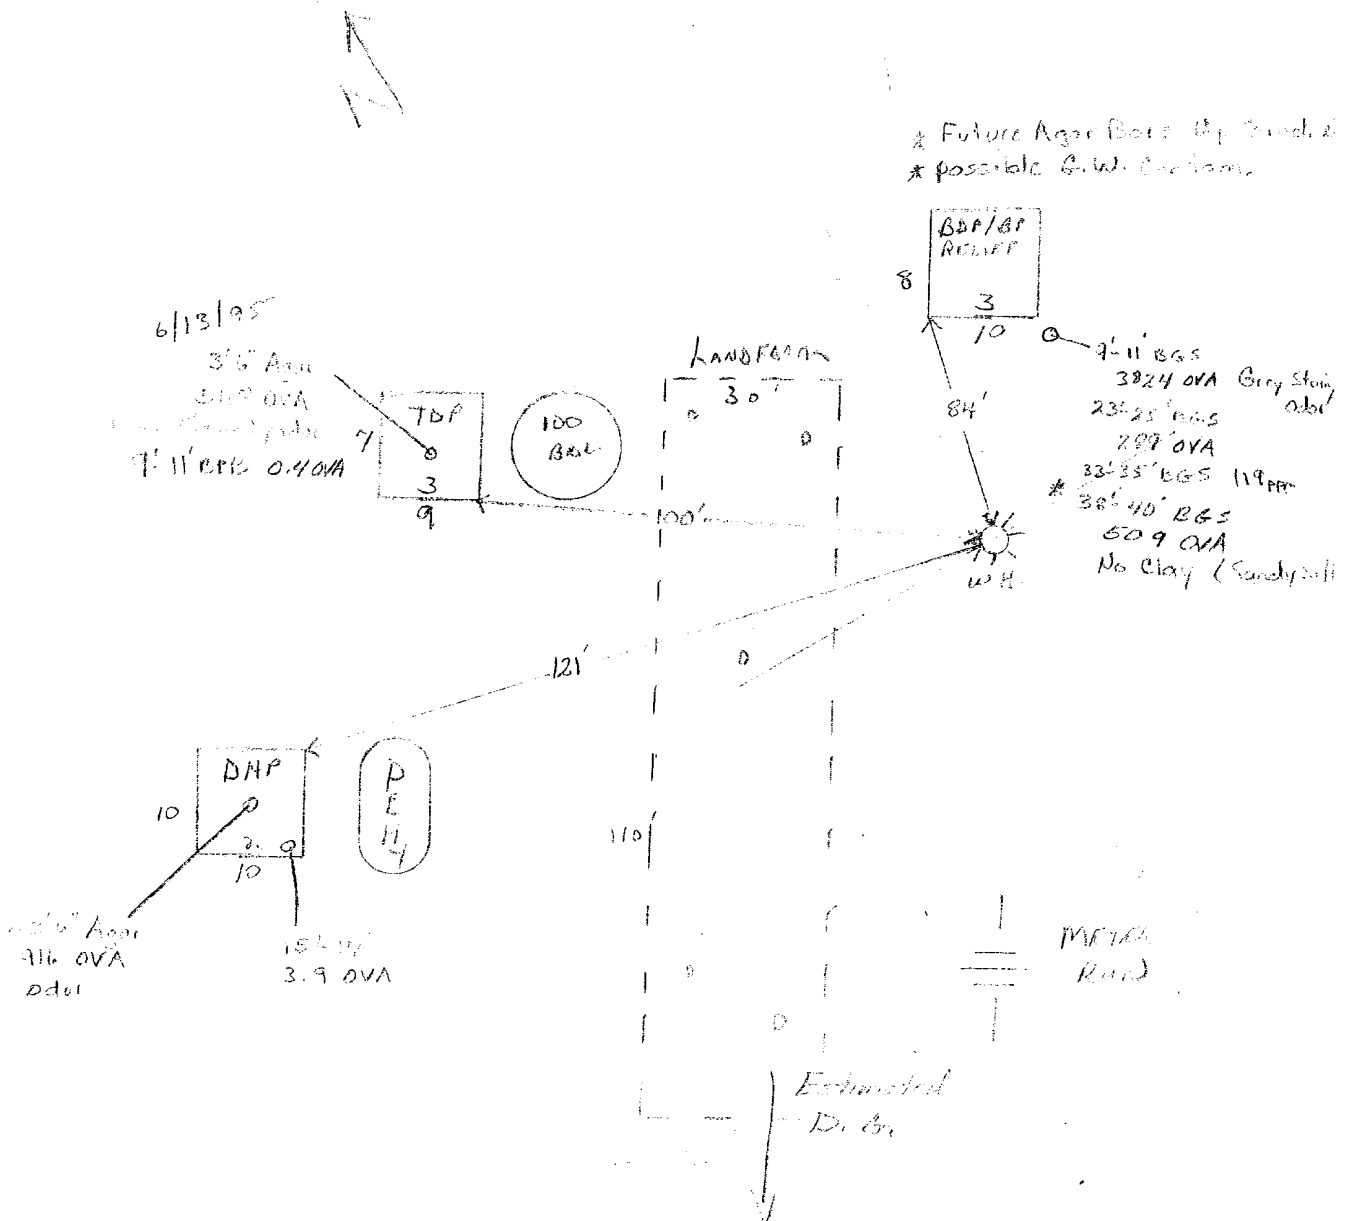 N
* Future Agar Bore Up
* possible G.W. Contam.
BDP/BP
RELIEF
8
3
10
9'-11' BGS
3824 OVA Grey Stain
odor
23'-25' BGS
OVA
33'-35' BGS 119 ppm
* 38'-40' BGS
509 OVA
No Clay (Sandy
84'
W.H.
6/13/95
3'6" Agar
OVA
9'-11' 0.4 OVA
TDP
7
3
9
100
BBL.
LANDFARM
30'
100'
121'
DHP
10
2
10
P
E
H
Y
110
3'6" Agar
916 OVA
Odor
3.9 OVA
METER
RUN
Estimated
D. G.